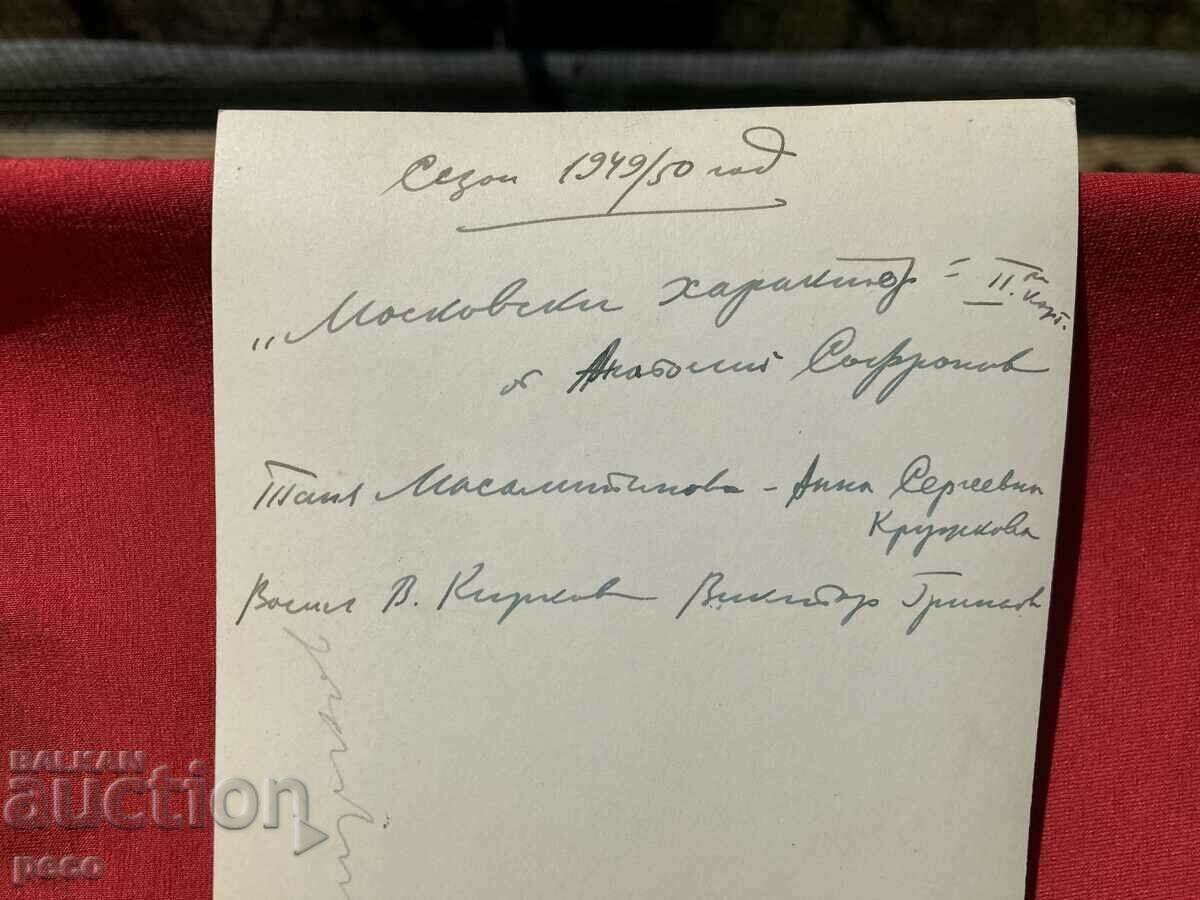 Сезон 1949/50 год
„Московски характер = II.ра карт.
от Анатолий Софронов
Таня Масалитинова - Анна Сергеевна
Кружкова
Васил В. Кирков Виктор Гринов
BALKAN
auction
peco